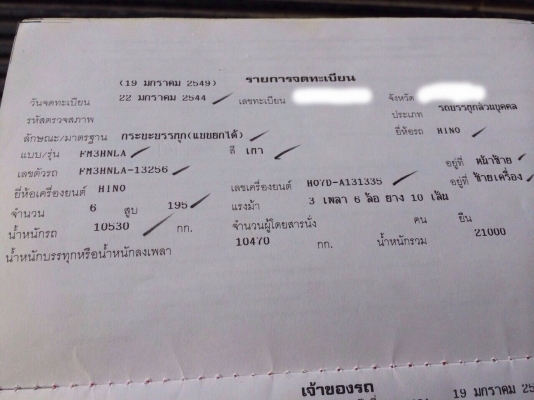 (19 มกราคม 2549) รายการจดทะเบียน
วันจดทะเบียน 22 มกราคม 2544 เลขทะเบียน จังหวัด
รหัสตรวจสภาพ ประเภท รถบรรทุกส่วนบุคคล
ลักษณะ/มาตรฐาน กระบะบรรทุก(แบบยกได้) ยี่ห้อรถ HINO
แบบ/รุ่น FM3HNLA สี เทา
เลขตัวรถ FM3HNLA-13256 อยู่ที่ หน้าซ้าย
ยี่ห้อเครื่องยนต์ HINO เลขเครื่องยนต์ H07D-A131335 อยู่ที่ ซ้ายเครื่อง
จำนวน 6 สูบ 195 แรงม้า 3 เพลา 6 ล้อ ยาง 10 เส้น
น้ำหนักรถ 10530 กก. จำนวนผู้โดยสารนั่ง คน ยืน
น้ำหนักบรรทุกหรือน้ำหนักลงเพลา 10470 กก. น้ำหนักรวม 21000
เจ้าของรถ
19 มกราคม 25